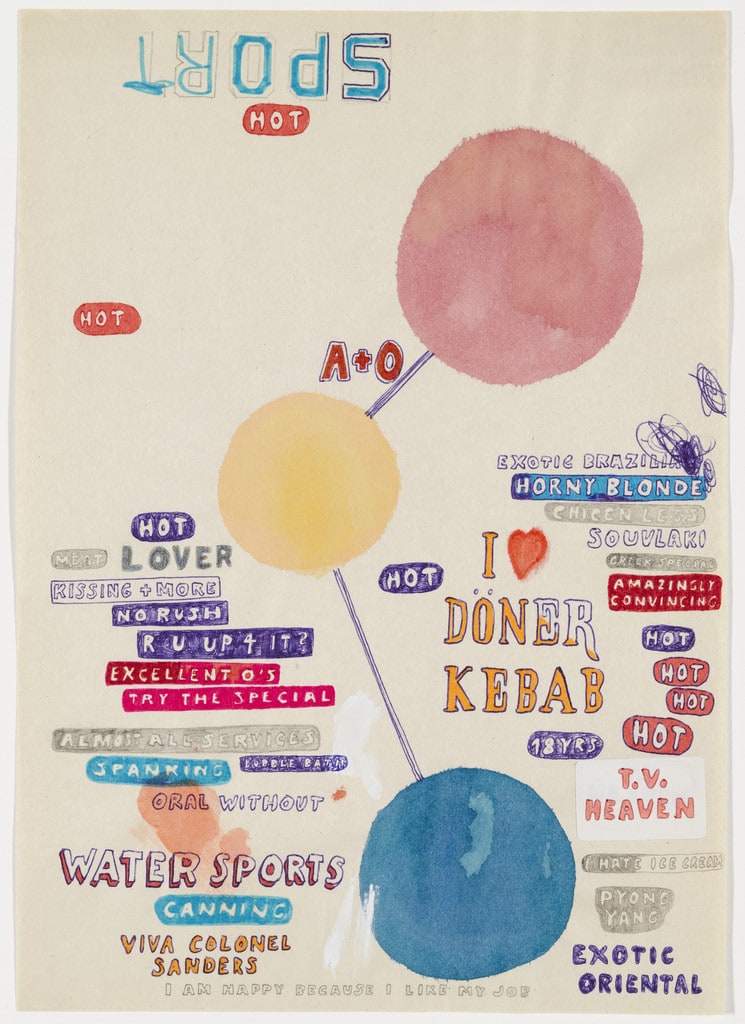 SPORT
HOT
HOT
A+O
EXOTIC BRAZILIAN
HORNY BLONDE
CHICEN LESS
SOUVLAKI
GREEK SPECIAL
AMAZINGLY
CONVINCING
HOT
HOT
HOT
HOT
I
DÖNER
KEBAB
18YRS
HOT
HOT
MEAT LOVER
KISSING + MORE
NO RUSH
R U UP 4 IT?
EXCELLENT O'S
TRY THE SPECIAL
ALMOST ALL SERVICES
SPANKING
BUBBLE BATH
ORAL WITHOUT
WATER SPORTS
CANNING
VIVA COLONEL
SANDERS
T.V.
HEAVEN
I HATE ICE CREAM
PYONG
YANG
EXOTIC
ORIENTAL
I AM HAPPY BECAUSE I LIKE MY JOB